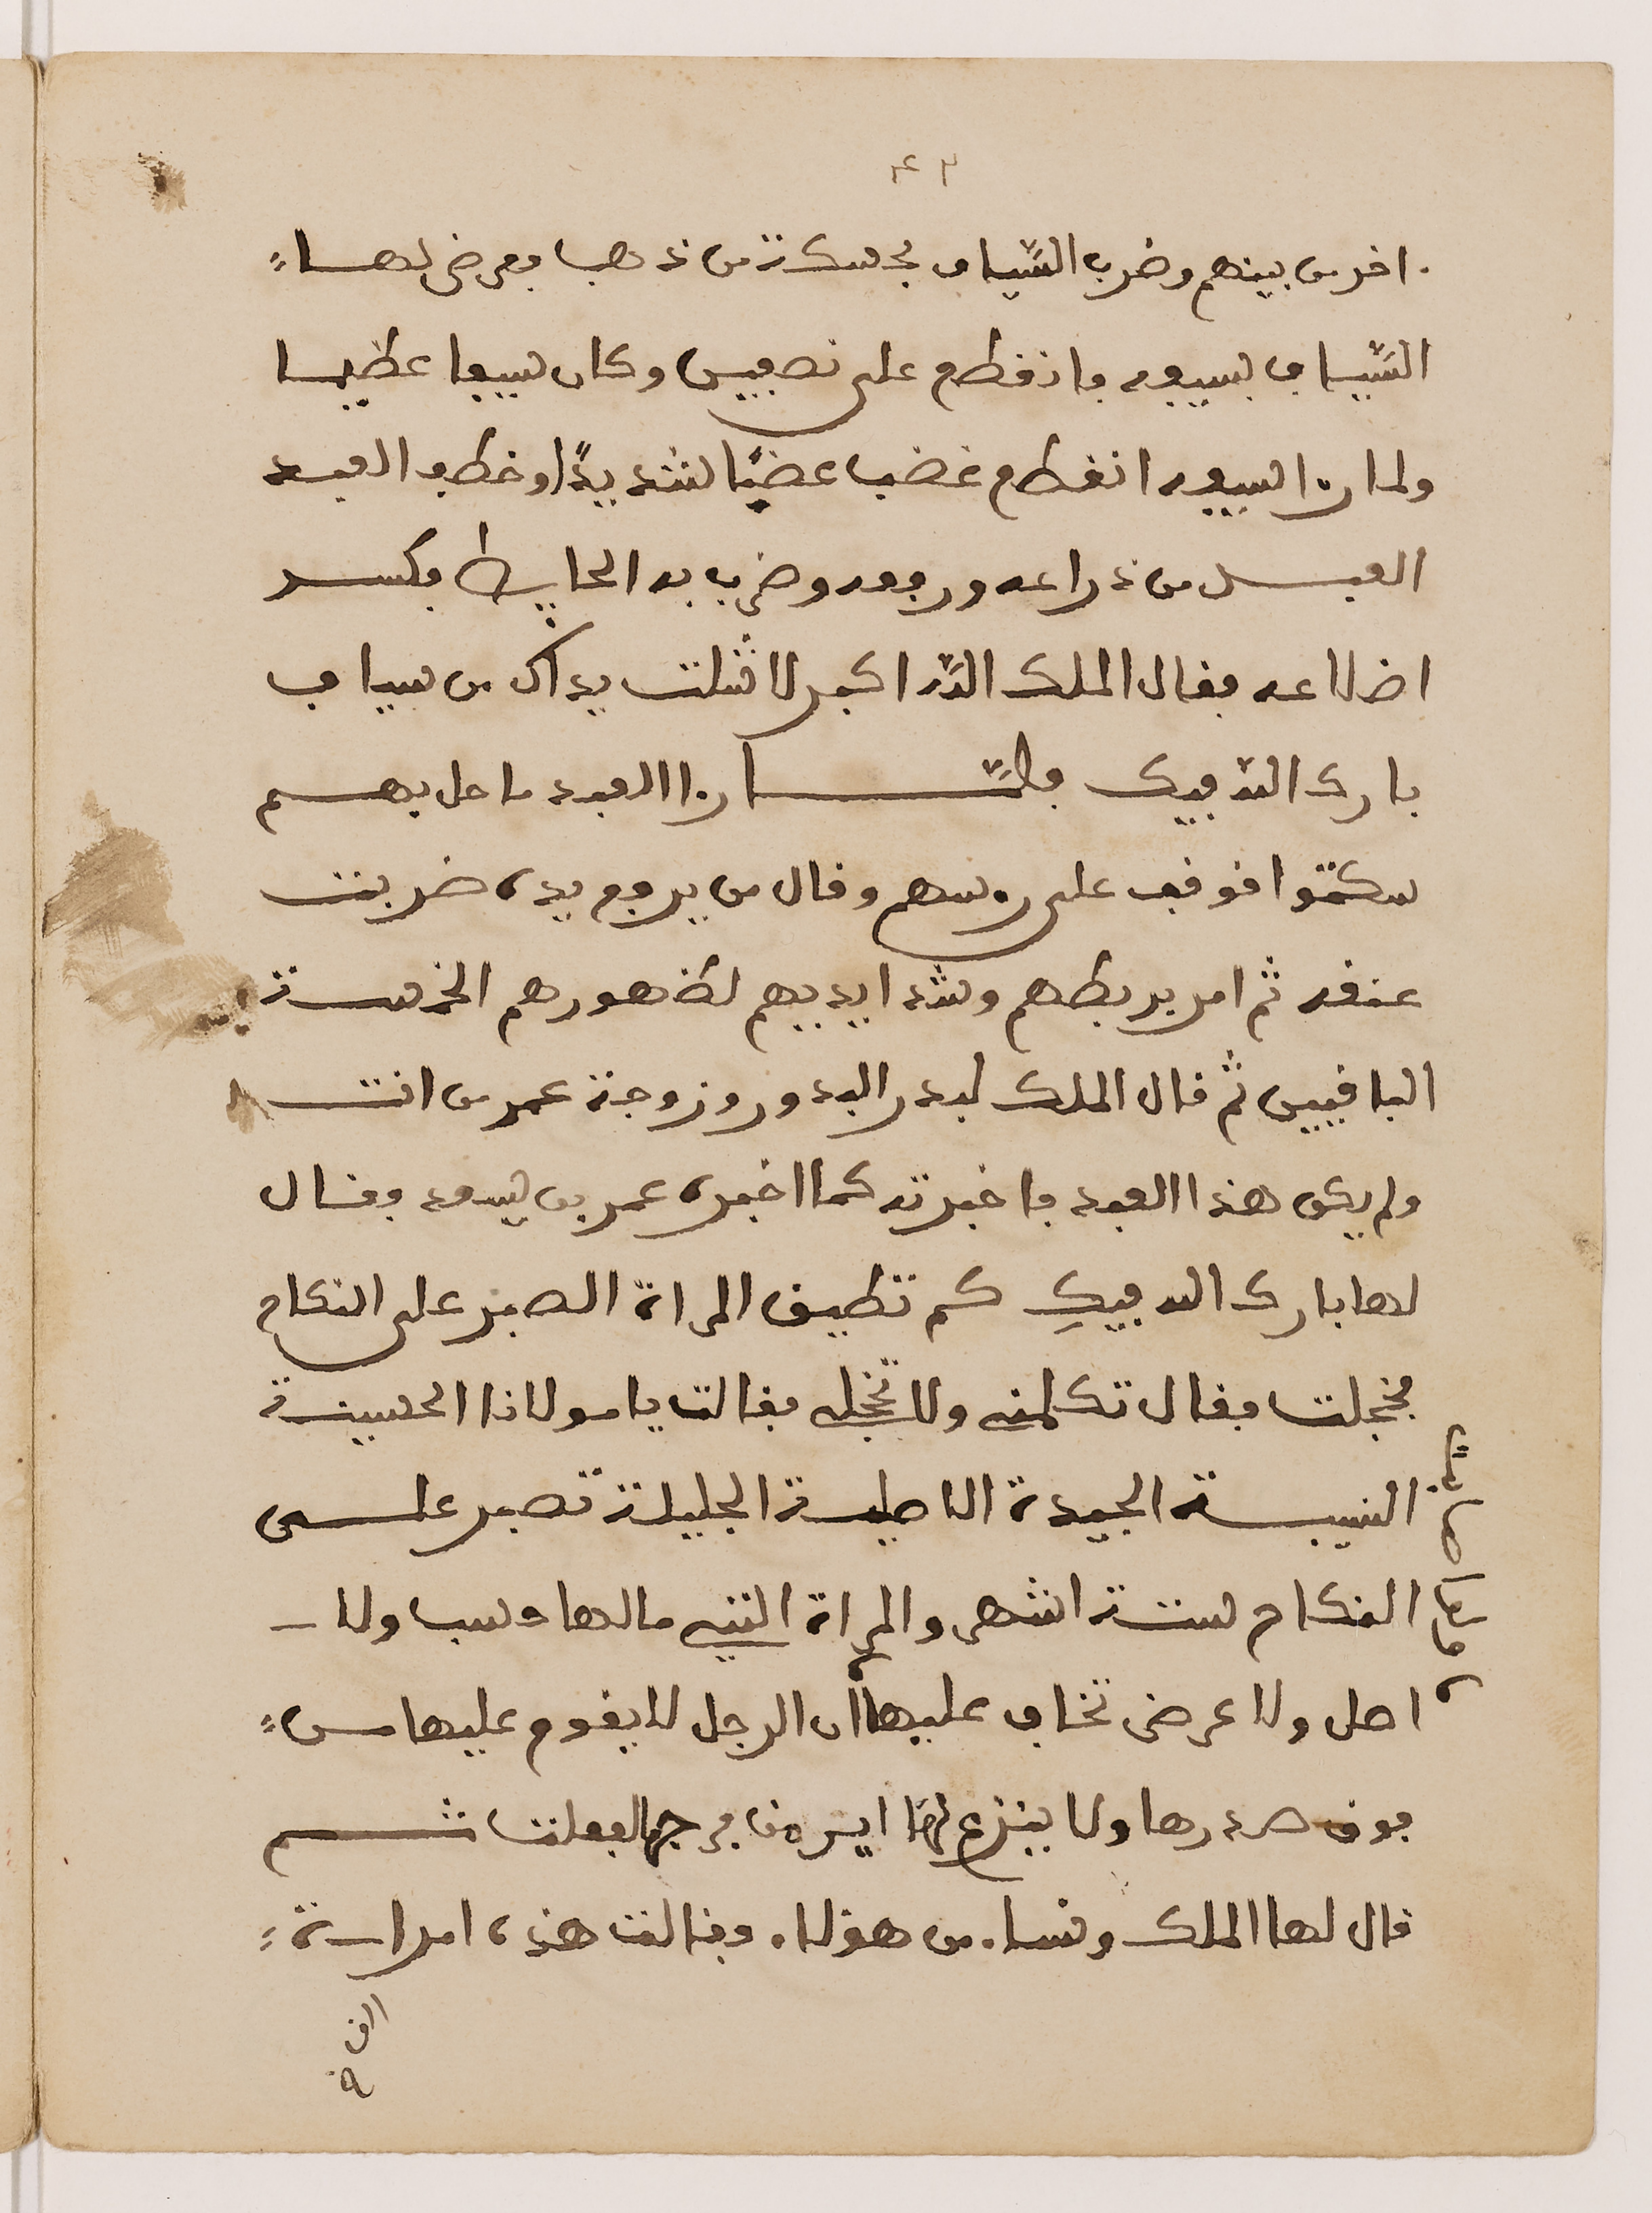 اخر من بينهم وضرب السَّياف بحسكة من ذهب فعرض لها
السَّياف بسيفه فانقطع على نصفين وكان سيفا عظيما
ولما را سيفه انقطع غضب غضبًا شديدًا وخطف العبد
العبد من ذراعه ورفعه وضرب به الحايط فكسر
اضلاعه فقال الملك الله اكبر لا شلت يداك من سياف
بارك الله فيك فلمَّا راا العبد ما حل بهم
سكتوا فوقف على رءسهم وقال من يرفع يده ضربت
عنقه ثم امر بربطهم وشد ايديهم لظهورهم الخمسة
الباقيين ثم قال الملك لبدر البدور زوجة عمر من انت
ولم يكن هذا العبد فاخبرته كما اخبره عمر بن سعد فقال
لها بارك الله فيكِ كم تطيق المراة الصبر على النكاح
فخجلت فقال تكلمي ولا تخجلي فقالت يا مولانا الحسيبة
النسيبة الجيدة الاصيلة الجليلة تصبر على
النكاح ستة اشهر والمراة التي ما لها حسب ولا
اصل ولا عرض تخاف عليها ان الرجل لا يقوم عليها من
فوق صدرها ولا ينزع لها ايره من فرجها لفعلت ثم
قال لها الملك ونساء من هؤلاء فقالت هذه امراة